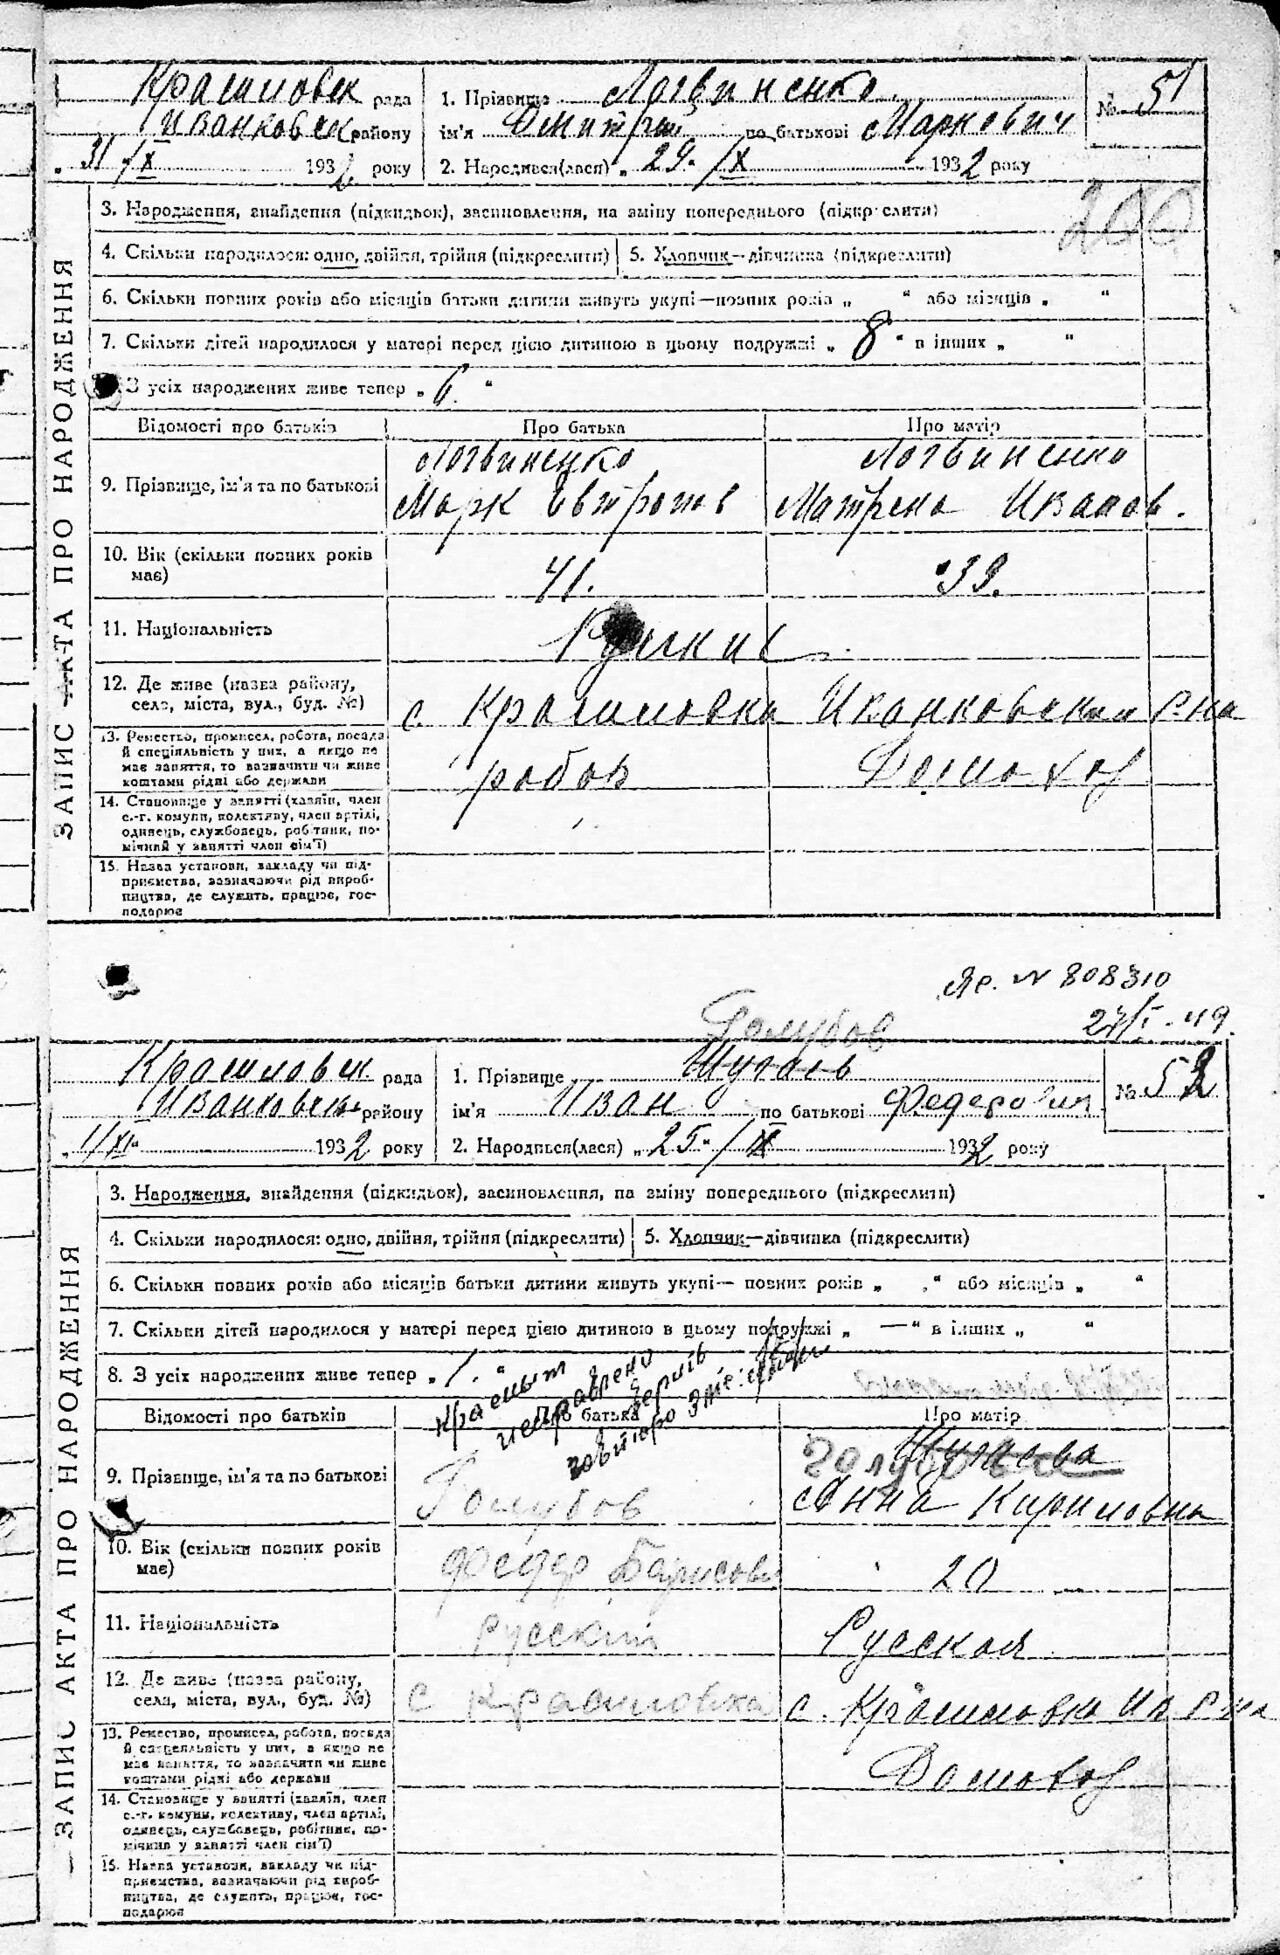 Красиловск рада
Иванковск району
„ 31/X 1932 року
1. Прізвище Логвиненко
ім'я Дмитрий по батькові Маркович
2. Народився(лася) „ 29. /IX 1932 року
№ 51
ЗАПИС АКТА ПРО НАРОДЖЕННЯ
3. Народження, знайдення (підкидьок), засиновлення, на зміну попереднього (підкреслити)
200
4. Скільки народилося: одно, двійня, трійня (підкреслити) 5. Хлопчик—дівчинка (підкреслити)
6. Скільки повних років або місяців батьки дитини живуть укупі—повних років „ “ або місяців „ “
7. Скільки дітей народилося у матері перед цією дитиною в цьому подружжі „ 8 “ в інших „ “
З усіх народжених живе тепер „ 6. “
Відомості про батьків Про батька Про матір
9. Прізвище, ім'я та по батькові
Логвиненко
Марк
Логвиненко
Матрена Иванов.
10. Вік (скільки повних років
має)
41. 39.
11. Національність
Русские
12. Де живе (назва району,
село, міста, вул., буд. №)
с. Красиловка Иванковского р-на
13. Ремество, промисел, робота, посада
й спеціяльність у них, а якщо не
має заняття, то зазначити чи живе
коштами рідні або держави
робоч Домохоз
14. Становище у занятті (хазяїн, член
с.-г. комуни, колективу, член артілі,
одинець, службовець, робітник, по-
мічний у занятті член сім'ї)
15. Назва установи, закладу чи під-
приємства, зазначаючи рід вироб-
ництва, де служить, працює, гос-
подарює
Яр. N 808310
27/I-49.
Голубов
Красиловск рада
Иванковск району
„ 1/XI 1932 року
1. Прізвище Шугаев
ім'я Иван по батькові Федорович
2. Народився(лася) „ 25. /IX 1932 року
№ 52
ЗАПИС АКТА ПРО НАРОДЖЕННЯ
3. Народження, знайдення (підкидьок), засиновлення, на зміну попереднього (підкреслити)
4. Скільки народилося: одно, двійня, трійня (підкреслити) 5. Хлопчик—дівчинка (підкреслити)
6. Скільки повних років або місяців батьки дитини живуть укупі— повних років „ “ або місяців „ “
7. Скільки дітей народилося у матері перед цією дитиною в цьому подружжі „ — “ в інших „ “
8. З усіх народжених живе тепер „ 1. “
исправлено
Відомості про батьків Про батька Про матір
9. Прізвище, ім'я та по батькові
Голубов
Шугаева
Голубова
Анна Кириловна
10. Вік (скільки повних років
має)
Федор Борисович
20
11. Національність
русский Русская
12. Де живе (назва району,
села, міста, вул., буд. №)
с Красиловка с. Красиловка Ив р-на
13. Ремество, промисел, робота, посада
й спеціяльність у них, а якщо не
має заняття, то зазначити чи живе
коштами рідні або держави
Домохоз
14. Становище у занятті (хазяїн, член
с.-г. комуни, колективу, член артілі,
одинець, службовець, робітник, по-
мічний у занятті член сім'ї)
15. Назва установи, закладу чи під-
приємства, зазначаючи рід вироб-
ництва, де служить, працює, гос-
подарює